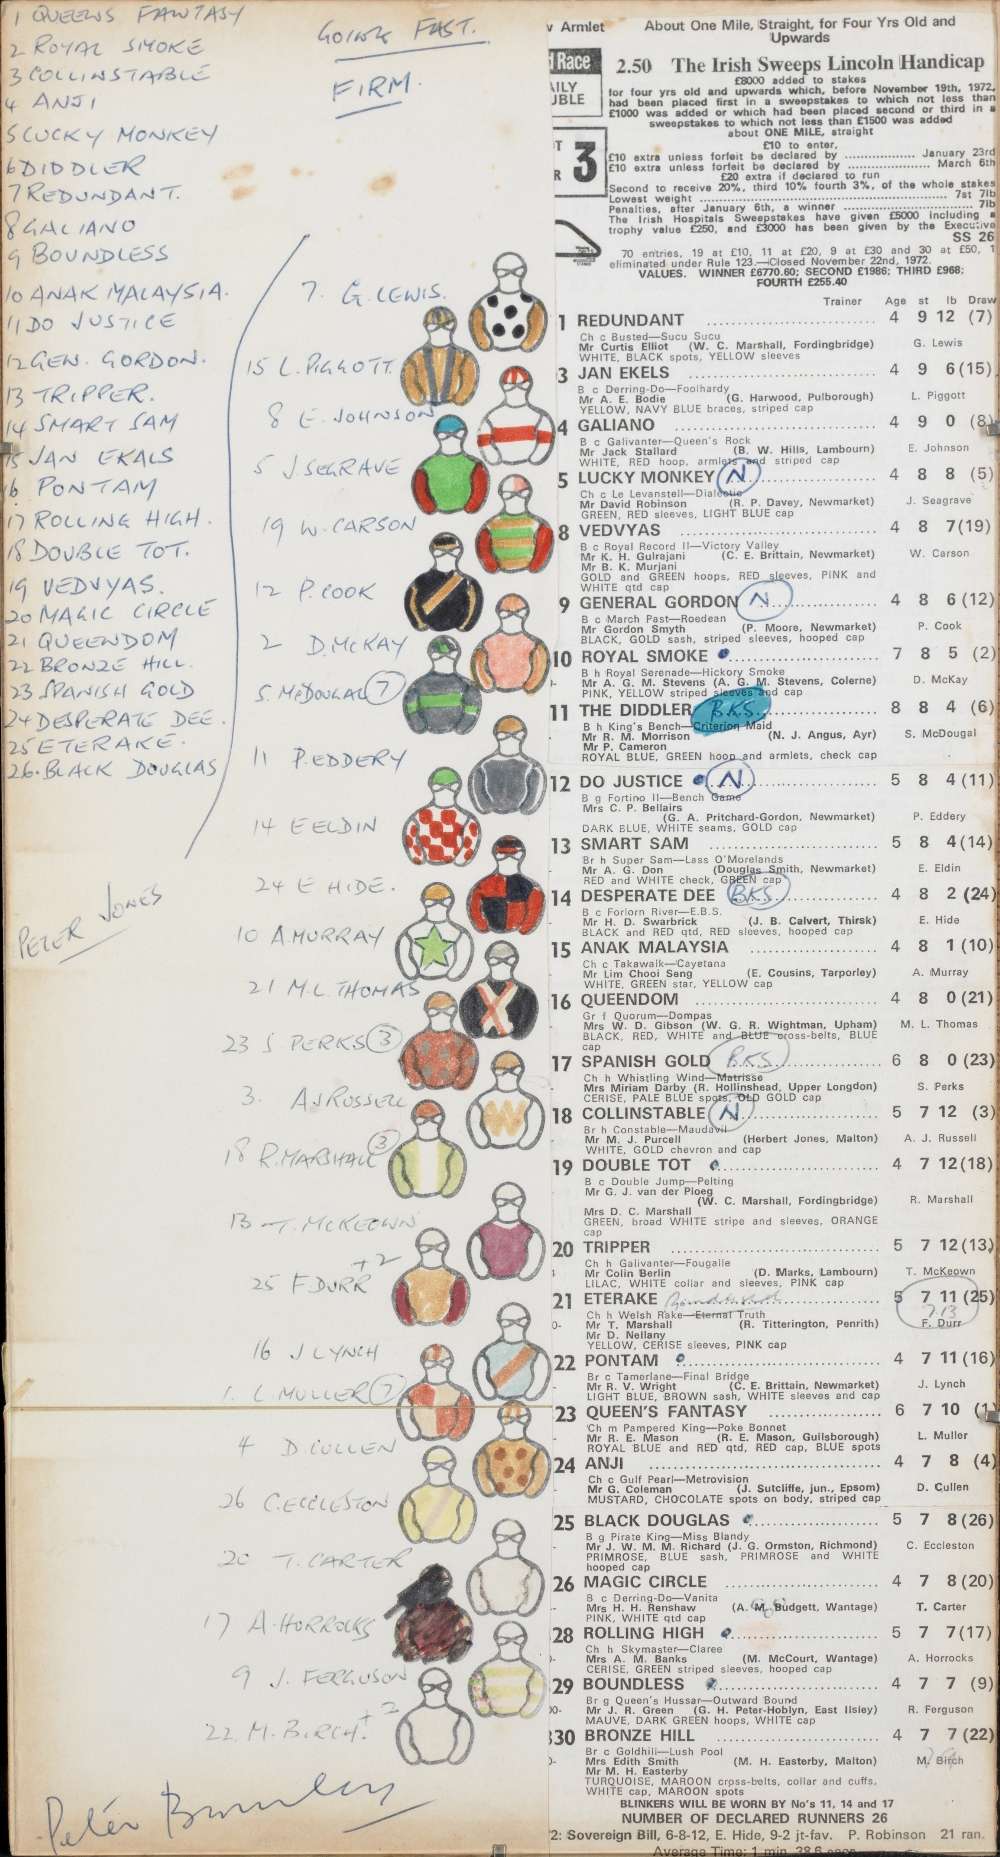 1 QUEENS FANTASY
2 ROYAL SMOKE
3 COLLINSTABLE
4 ANJI
5 LUCKY MONKEY
6 DIDDLER
7 REDUNDANT.
8 GALIANO
9 BOUNDLESS
10 ANAK MALAYSIA.
11 DO JUSTICE
12 GEN. GORDON.
13 TRIPPER.
14 SMART SAM
15 JAN EKALS
16 PONTAM
17 ROLLING HIGH.
18 DOUBLE TOT.
19 VEDVYAS.
20 MAGIC CIRCLE
21 QUEENDOM
22 BRONZE HILL.
23 SPANISH GOLD
24 DESPERATE DEE.
25 ETERAKE.
26. BLACK DOUGLAS
PETER JONES
Peter Bromley
GOING FAST.
FIRM.
7. G. LEWIS.
15 L. PIGGOTT.
8 E. JOHNSON
5 J SEGRAVE
19 W. CARSON
12 P. COOK
2 D. McKAY
S. McDOUGAL (7)
11 P. EDDERY
14 E ELDIN
24 E HIDE.
10 A. MURRAY
21 M.L. THOMAS
23 S. PERKS (3)
3. A J RUSSELL
18 R. MARSHALL (3)
13 T. McKEOWN
+2
25 F. DURR
16 J LYNCH
1. L. MULLER (7)
4 D. CULLEN
26 C. ECCLESTON
20 T. CARTER
17 A. HORROCKS
9 J. FERGUSON
22. M. BIRCH. +2
Armlet
About One Mile, Straight, for Four Yrs Old and
Upwards
Race
3
2.50 The Irish Sweeps Lincoln Handicap
£8000 added to stakes
for four yrs old and upwards which, before November 19th, 1972,
had been placed first in a sweepstakes to which not less than
£1000 was added or which had been placed second or third in a
sweepstakes to which not less than £1500 was added
about ONE MILE, straight
£10 to enter,
£10 extra unless forfeit be declared by ................ January 23rd
£10 extra unless forfeit be declared by ................ March 6th
£20 extra if declared to run
Second to receive 20%, third 10% fourth 3%, of the whole stakes
Lowest weight ................ 7st 7lb
Penalties, after January 6th, a winner ................ 7lb
The Irish Hospitals Sweepstakes have given £5000 including a
trophy value £250, and £3000 has been given by the Executive
SS 26
70 entries, 19 at £10, 11 at £20, 9 at £30 and 30 at £50, 1
eliminated under Rule 123.—Closed November 22nd, 1972.
VALUES. WINNER £6770.60; SECOND £1986; THIRD £968;
FOURTH £255.40
Trainer Age st lb Draw
1 REDUNDANT ................ 4 9 12 (7)
Ch c Busted—Sucu Sucu
Mr Curtis Elliot (W. C. Marshall, Fordingbridge) G. Lewis
WHITE, BLACK spots, YELLOW sleeves
3 JAN EKELS ................ 4 9 6 (15)
B c Derring-Do—Foolhardy
Mr A. E. Bodie (G. Harwood, Pulborough) L. Piggott
YELLOW, NAVY BLUE braces, striped cap
4 GALIANO ................ 4 9 0 (8)
B c Galivanter—Queen's Rock
Mr Jack Stallard (B. W. Hills, Lambourn) E. Johnson
WHITE, RED hoop, armlets and striped cap
5 LUCKY MONKEY N 4 8 8 (5)
Ch c Le Levanstell—Dialectic
Mr David Robinson (R. P. Davey, Newmarket) J. Seagrave
GREEN, RED sleeves, LIGHT BLUE cap
8 VEDVYAS ................ 4 8 7 (19)
B c Royal Record II—Victory Valley
Mr K. H. Gulrajani (C. E. Brittain, Newmarket) W. Carson
Mr B. K. Murjani
GOLD and GREEN hoops, RED sleeves, PINK and
WHITE qtd cap
9 GENERAL GORDON N 4 8 6 (12)
B c March Past—Roedean
Mr Gordon Smyth (P. Moore, Newmarket) P. Cook
BLACK, GOLD sash, striped sleeves, hooped cap
10 ROYAL SMOKE ................ 7 8 5 (2)
B h Royal Serenade—Hickory Smoke
Mr A. G. M. Stevens (A. G. M. Stevens, Colerne) D. McKay
PINK, YELLOW striped sleeves and cap
11 THE DIDDLER B.K.S. 8 8 4 (6)
B h King's Bench—Criterion Maid
Mr R. M. Morrison (N. J. Angus, Ayr) S. McDougal
Mr P. Cameron
ROYAL BLUE, GREEN hoop and armlets, check cap
12 DO JUSTICE N 5 8 4 (11)
B g Fortino II—Bench Game
Mrs C. P. Bellairs
(G. A. Pritchard-Gordon, Newmarket) P. Eddery
DARK BLUE, WHITE seams, GOLD cap
13 SMART SAM ................ 5 8 4 (14)
Br h Super Sam—Lass O'Morelands
Mr A. G. Don (Douglas Smith, Newmarket) E. Eldin
RED and WHITE check, GREEN cap
14 DESPERATE DEE B.K.S. 4 8 2 (24)
B c Forlorn River—E.B.S.
Mr H. D. Swarbrick (J. B. Calvert, Thirsk) E. Hide
BLACK and RED qtd, RED sleeves, hooped cap
15 ANAK MALAYSIA ................ 4 8 1 (10)
Ch c Takawalk—Cayetana
Mr Lim Chooi Seng (E. Cousins, Tarporley) A. Murray
WHITE, GREEN star, YELLOW cap
16 QUEENDOM ................ 4 8 0 (21)
Gr f Quorum—Dompas
Mrs W. D. Gibson (W. G. R. Wightman, Upham) M. L. Thomas
BLACK, RED, WHITE and BLUE cross-belts, BLUE
cap
17 SPANISH GOLD B.K.S. 6 8 0 (23)
Ch h Whistling Wind—Matrisse
Mrs Miriam Darby (R. Hollinshead, Upper Longdon) S. Perks
CERISE, PALE BLUE spots, OLD GOLD cap
18 COLLINSTABLE N 5 7 12 (3)
Br h Constable—Maudavil
Mr M. J. Purcell (Herbert Jones, Malton) A. J. Russell
WHITE, GOLD chevron and cap
19 DOUBLE TOT ................ 4 7 12 (18)
B c Double Jump—Pelting
Mr G. J. van der Ploeg
(W. C. Marshall, Fordingbridge) R. Marshall
Mrs D. C. Marshall
GREEN, broad WHITE stripe and sleeves, ORANGE
cap
20 TRIPPER ................ 5 7 12 (13)
Ch h Galivanter—Fougalle
Mr Colin Berlin (D. Marks, Lambourn) T. McKeown
LILAC, WHITE collar and sleeves, PINK cap
21 ETERAKE 5 7 11 (25)
7.13
Ch h Welsh Rake—Eternal Truth
Mr T. Marshall (R. Titterington, Penrith) F. Durr
Mr D. Nellany
YELLOW, CERISE sleeves, PINK cap
22 PONTAM ................ 4 7 11 (16)
Br c Tamerlane—Final Bridge
Mr R. V. Wright (C. E. Brittain, Newmarket) J. Lynch
LIGHT BLUE, BROWN sash, WHITE sleeves and cap
23 QUEEN'S FANTASY ................ 6 7 10 (1)
Ch m Pampered King—Poke Bonnet
Mr R. E. Mason (R. E. Mason, Guilsborough) L. Muller
ROYAL BLUE and RED qtd, RED cap, BLUE spots
24 ANJI ................ 4 7 8 (4)
Ch c Gulf Pearl—Metrovision
Mr G. Coleman (J. Sutcliffe, jun., Epsom) D. Cullen
MUSTARD, CHOCOLATE spots on body, striped cap
25 BLACK DOUGLAS ................ 5 7 8 (26)
B g Pirate King—Miss Blandy
Mr J. W. M. M. Richard (J. G. Ormston, Richmond) C. Eccleston
PRIMROSE, BLUE sash, PRIMROSE and WHITE
hooped cap
26 MAGIC CIRCLE ................ 4 7 8 (20)
B c Derring-Do—Vanita
Mrs H. H. Renshaw (A. M. Budgett, Wantage) T. Carter
PINK, WHITE qtd cap
28 ROLLING HIGH ................ 5 7 7 (17)
Ch h Skymaster—Claree
Mrs A. M. Banks (M. McCourt, Wantage) A. Horrocks
CERISE, GREEN striped sleeves, hooped cap
29 BOUNDLESS ................ 4 7 7 (9)
Br g Queen's Hussar—Outward Bound
Mr J. R. Green (G. H. Peter-Hoblyn, East Ilsley) R. Ferguson
MAUVE, DARK GREEN hoops, WHITE cap
30 BRONZE HILL ................ 4 7 7 (22)
Br c Goldhill—Lush Pool
Mrs Edith Smith (M. H. Easterby, Malton) M. Birch
Mr M. H. Easterby
TURQUOISE, MAROON cross-belts, collar and cuffs,
WHITE cap, MAROON spots
BLINKERS WILL BE WORN BY No's 11, 14 and 17
NUMBER OF DECLARED RUNNERS 26
2: Sovereign Bill, 6-8-12, E. Hide, 9-2 jt-fav. P. Robinson 21 ran.
Average Time: 1 min 38.6 secs